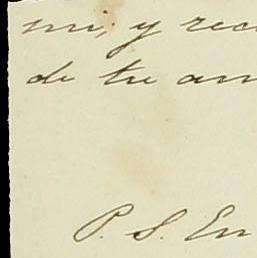 mi; y reci
de tu am
P. S. En